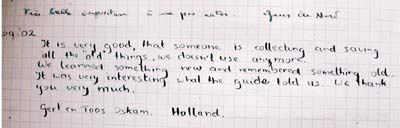 Très belle exposition à ne pas rater.
09.'02
It is very good, that someone is collecting and saving
all the "old" things, we doesn't use anymore.
We learned something new and remembered something old.
It was very interesting what the guide told us. We thank
you very much.
Gert en Toos Oskam. Holland.